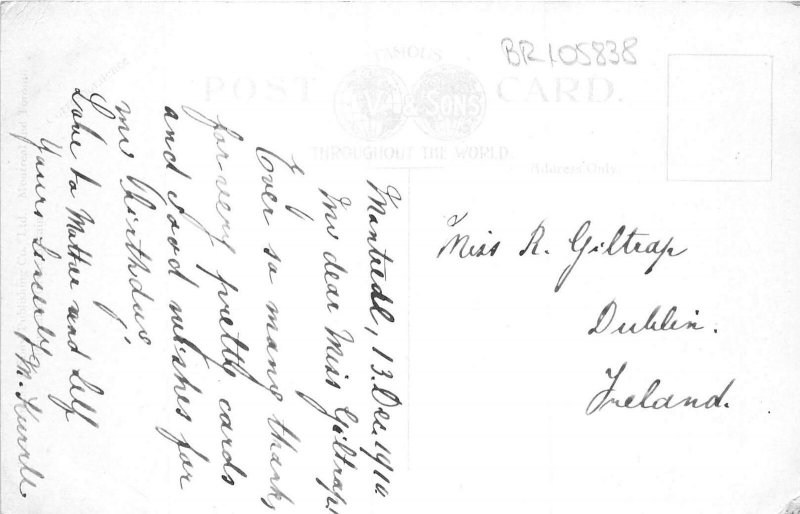 BR105838
FAMOUS
POST CARD.
V & SONS
THROUGHOUT THE WORLD.
Address Only.
Montreal, 13. Dec. 1910
My dear Miss Giltrap!
Ever so many thanks
for very pretty cards
and good wishes for
my birthday.
Love to Mother and Self
Yours Sincerely
M.
Miss R. Giltrap
Dublin.
Ireland.